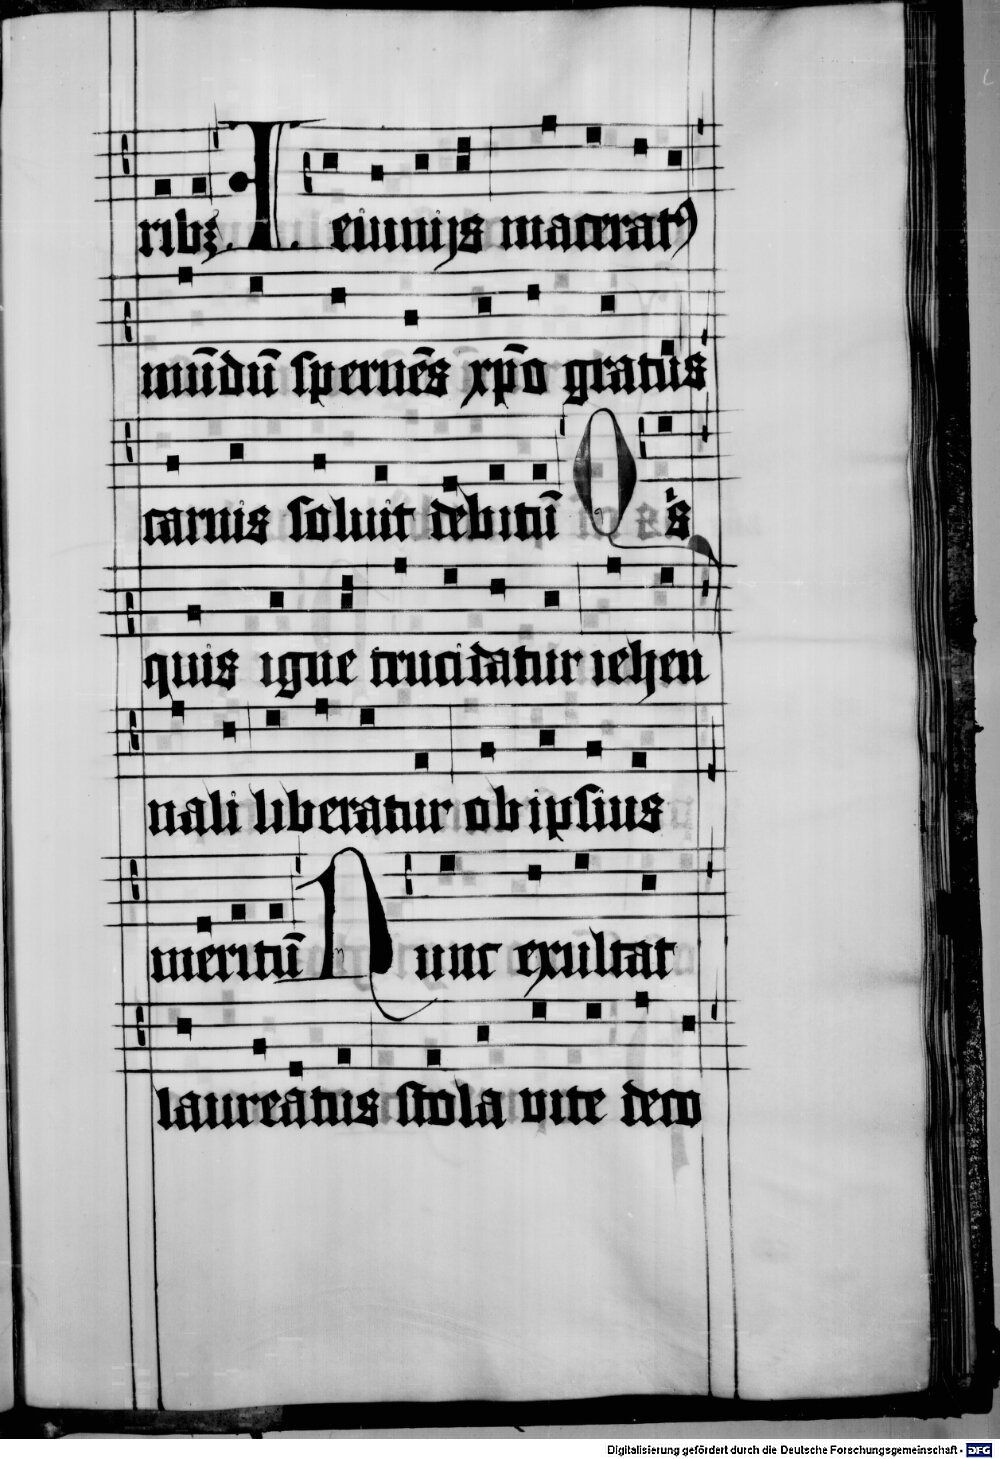 ribꝫ. I. eiunijs maceratꝰ
mūdū spernēs xp̄o gratus
carnis soluit debitū O īs
quis igne trucidatur iehen
nali liberatur ob ipsius
meritū N unc exultat
laureatus stola vite deco
Digitalisierung gefördert durch die Deutsche Forschungsgemeinschaft - DFG